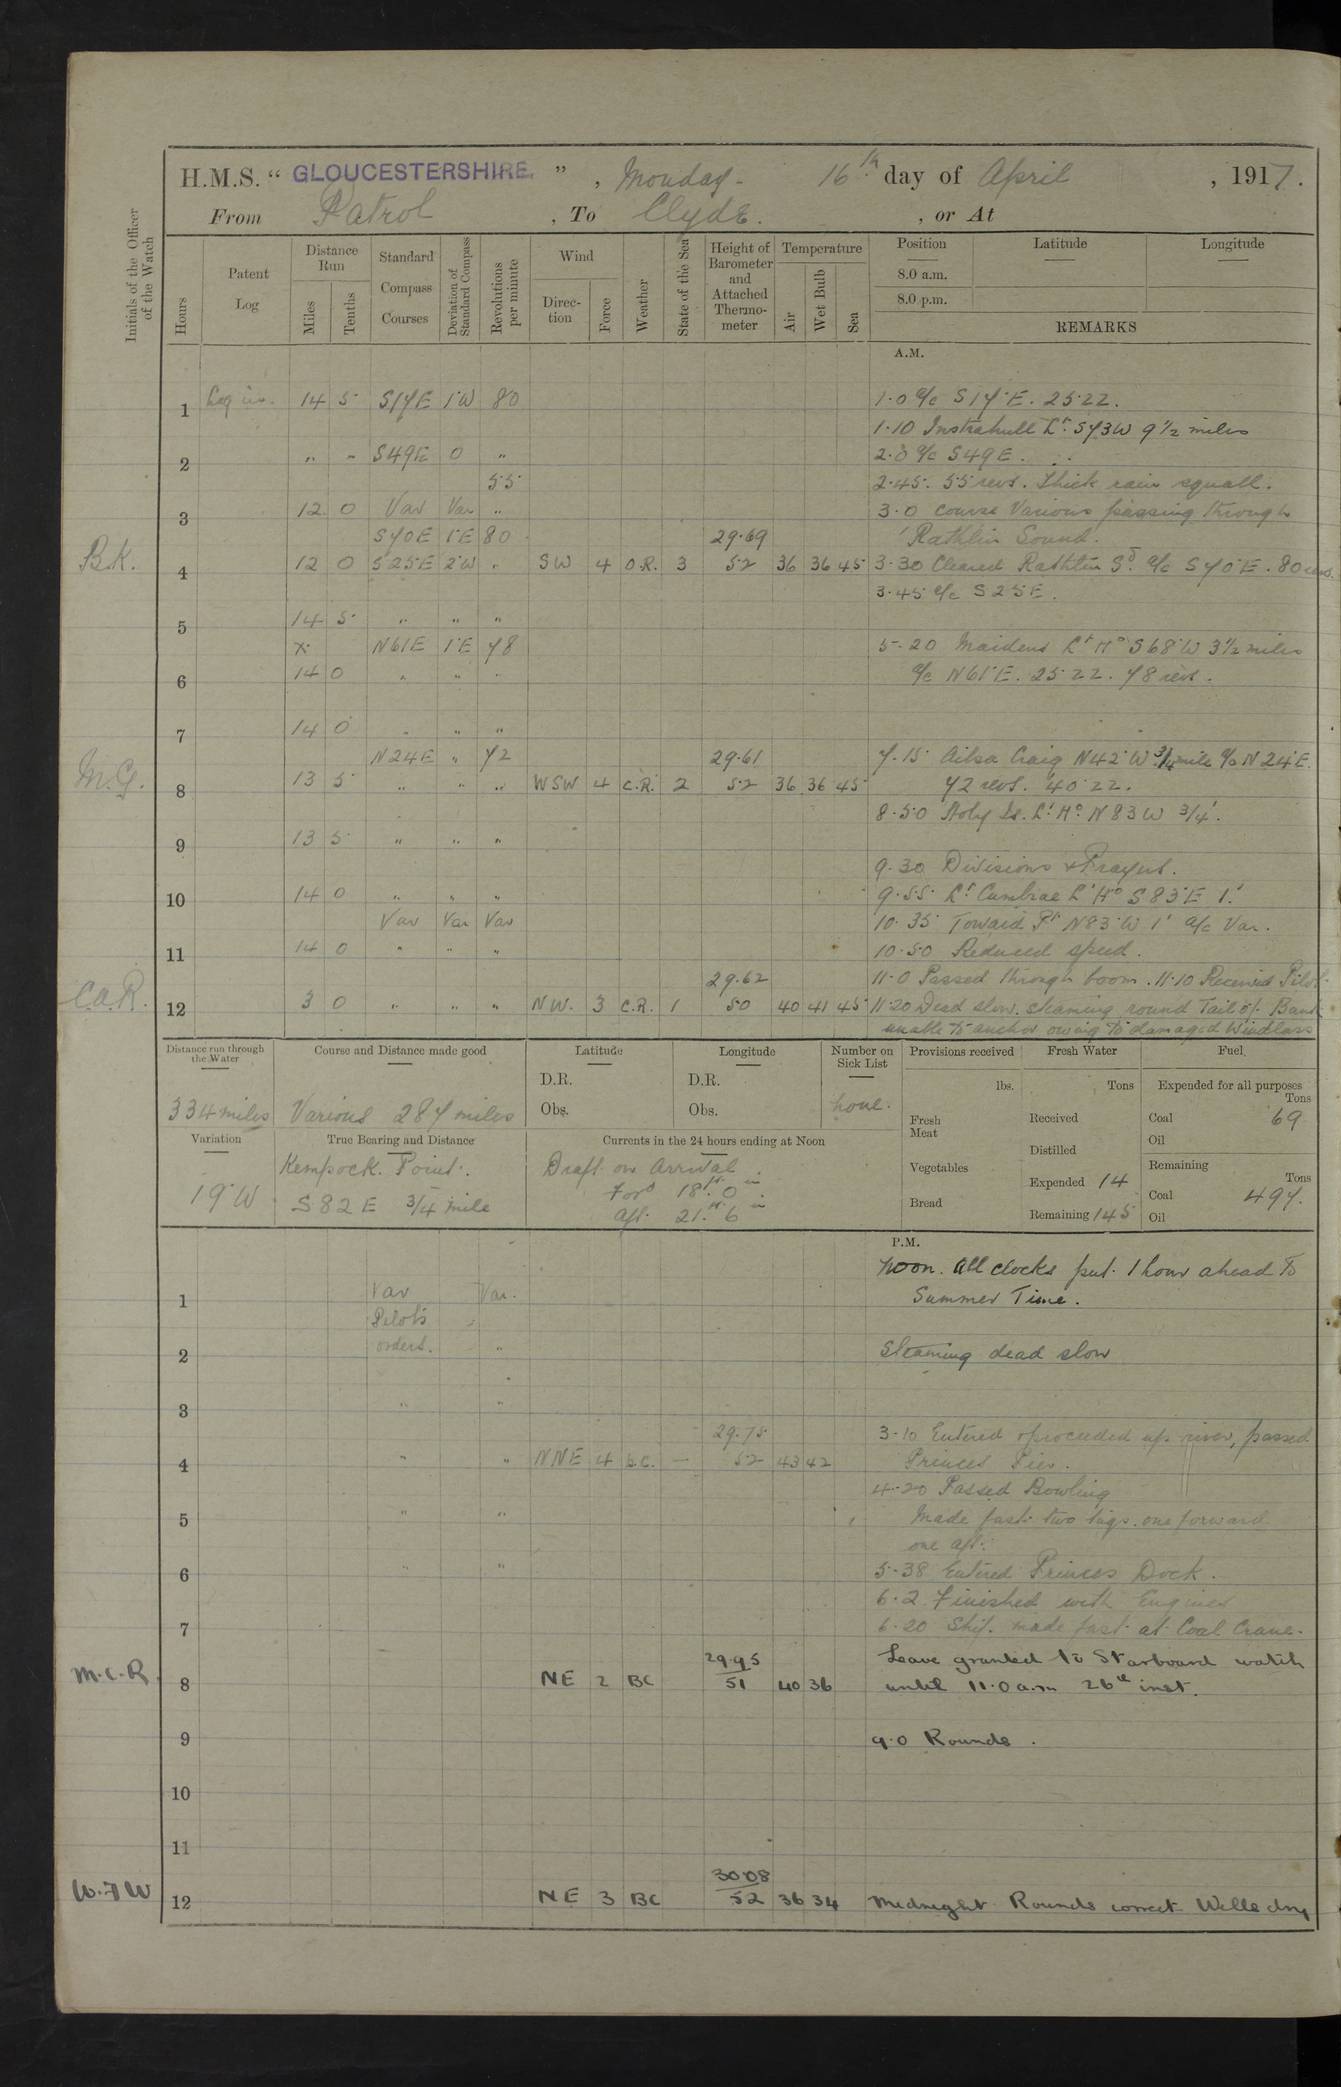 H.M.S. “ GLOUCESTERSHIRE. ” , Monday - 16th day of April , 1917.
From Patrol , To Clyde. , or At
Initials of the Officer of the Watch
Hours
Patent Log
Distance Run
Miles Tenths
Standard Compass Courses
Deviation of Standard Compass
Revolutions per minute
Wind
Direction Force
Weather
State of the Sea
Height of Barometer and Attached Thermometer
Temperature
Air Wet Bulb Sea
Position Latitude Longitude
8.0 a.m.
8.0 p.m.
REMARKS
A.M.
1 Log in. 14 5 S17E 1°W 80 1.0 a/c S17°E. 25.22.
1.10 Instrahull Lt. S73W 9½ miles
2 " " S49E 0 " 2.0 a/c S49E.
55 2.45. 55 revs. Thick rain squall.
3 12 0 Var Var " 3.0 Course Various passing through
S70E 1°E 80 29.69 Rathlin Sound.
B.K. 4 12 0 S25E 2°W " SW 4 O.R. 3 52 36 36 45 3.30 Cleared Rathlin Sd. a/c S70°E. 80 revs.
3.45 a/c S25E.
5 14 5 " " "
x N61E 1°E 78 5.20 Maidens Lt Ho S68°W 3½ miles
6 14 0 " " " a/c N61°E. 25.22. 78 revs.
7 14 0 " " "
N24E " 72 29.61 7.15 Ailsa Craig N42°W ¾ mile a/c N24E.
M.G. 8 13 5 " " " WSW 4 C.R. 2 52 36 36 45 72 revs. 40.22.
8.50 Holy Is. Lt Ho N83W ¾'.
9 13 5 " " "
9.30 Divisions & Prayers.
10 14 0 " " " 9.55 Lt. Cumbrae Lt Ho S83°E 1.'
Var Var Var 10.35 Toward Pt N83°W 1' a/c Var.
11 14 0 " " " 10.50 Reduced speed.
29.62 11.0 Passed through boom. 11.10 Received Pilot.
C.A.R. 12 3 0 " " " NW. 3 C.R. 1 50 40 41 45 11.20 Dead slow. steaming round Tail of Bank
unable to anchor owing to damaged windlass
Distance run through the Water
Course and Distance made good
Latitude Longitude
Number on Sick List
Provisions received Fresh Water Fuel
D.R. D.R. lbs. Tons Expended for all purposes Tons
334 miles Various 287 miles Obs. Obs. none.
Fresh Meat Received Coal 69
Oil
Variation True Bearing and Distance Currents in the 24 hours ending at Noon
Distilled
Kempock. Point. Draft on Arrival Vegetables Remaining Tons
19°W S82E ¾ mile Ford 18ft. 0in Expended 14 Coal 497.
Aft. 21ft. 6in Bread Remaining 145 Oil
P.M.
Noon. All clocks put 1 hour ahead to
1 Var Var. Summer Time.
Pilots
2 orders. " Steaming dead slow
3 " "
29.75 3.10 Entered & proceeded up river, passed
4 " " NNE 4 b.c. — 52 43 42 Princes Pier.
4.20 Passed Bowling
5 " " Made fast two tugs. one forward
one aft.
6 " " 5.38 Entered Princes Dock.
6.2 Finished with Engines
7 6.20 Ship. made fast at Coal Crane.
29.95 Leave granted to Starboard watch
M.C.R. 8 NE 2 BC 51 40 36 until 11.0 a.m 26th inst.
9 9.0 Rounds.
10
11
30.08
W.F.W 12 NE 3 BC 52 36 34 Midnight Rounds correct Wells dry